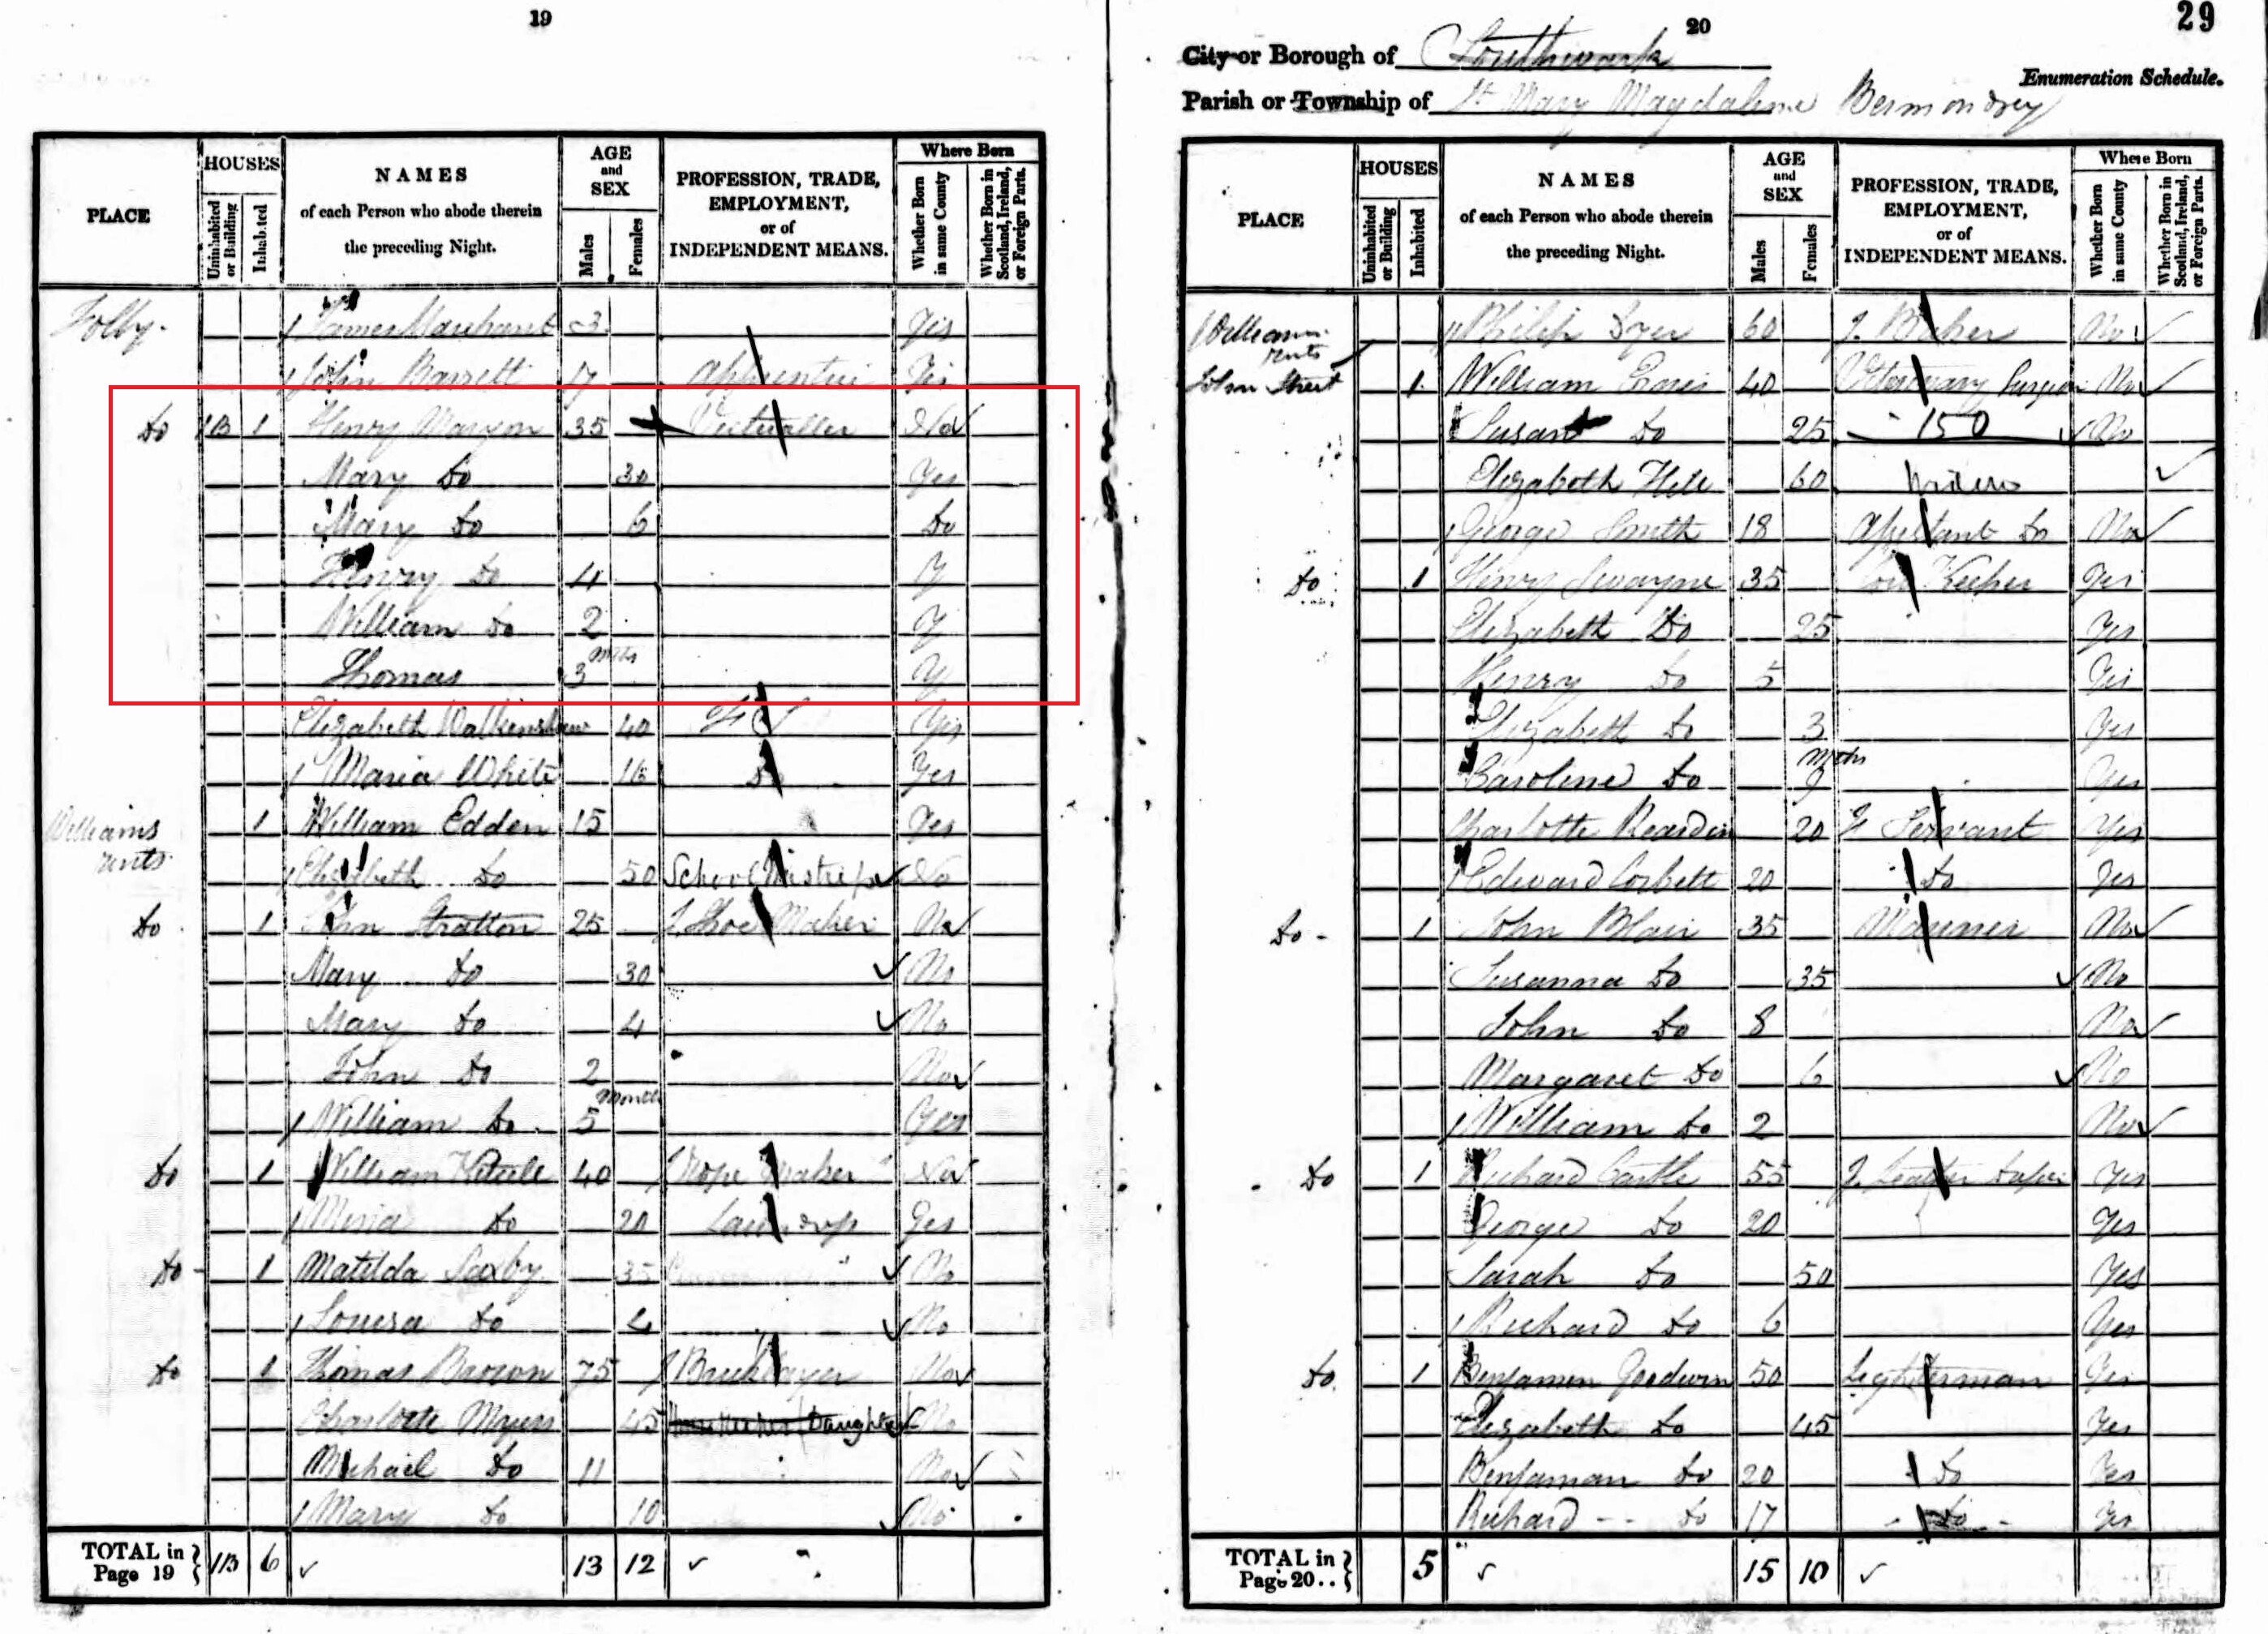 19
PLACE
HOUSES
Uninhabited or Building
Inhabited
NAMES
of each Person who abode therein
the preceding Night.
AGE
and
SEX
Males
Females
PROFESSION, TRADE,
EMPLOYMENT,
or of
INDEPENDENT MEANS.
Where Born
Whether Born in same County
Whether Born in Scotland, Ireland, or Foreign Parts.
Folly. James Marchant 3 Yes
John Barrett Apprentice Yes
do 1B 1 Henry 35 Victualler No
Mary do 30 Yes
Mary do 6 do
Henry do 4 Y
William do 2 Y
Thomas 3 mths Y
Elizabeth Walkinshaw 40 F S Yes
Maria White 16 Do Yes
Williams rents 1 William Edden 15 Yes
Elizabeth do 50 School Mistress No
do 1 John Stratton 25 J. Shoe Maker No
Mary do 30 No
Mary do 4 No
John do 2 No
William do 5 Months Yes
do 1 William 40 J Rope Maker No
do 20 Laundress Yes
do 1 Matilda Saxby 35 No
Louisa do 4 No
do 1 Thomas Brown 75 J Bricklayer No
Charlotte Myers 45 Daughter No
Michail do 11 No
Mary do 10 No
TOTAL in Page 19 1B 6 13 12
20
29
City or Borough of Southwark
Enumeration Schedule.
Parish or Township of St Mary Magdalene Bermondsey
PLACE
HOUSES
Uninhabited or Building
Inhabited
NAMES
of each Person who abode therein
the preceding Night.
AGE
and
SEX
Males
Females
PROFESSION, TRADE,
EMPLOYMENT,
or of
INDEPENDENT MEANS.
Where Born
Whether Born in same County
Whether Born in Scotland, Ireland, or Foreign Parts.
Williams rents Philip Dyer 60 J. Baker No
John Street 1 William 40 Veterinary Surgeon No
Susan do 25 150 No
Elizabeth Hill 60
George Smith 18 Assistant do No
do 1 Henry Swayne 35 Keeper Yes
Elizabeth Do 25 Yes
Henry do 5 Yes
Elizabeth do 3 Yes
Caroline do 9 Mths Yes
Charlotte Reardin 20 F Servant Yes
Edward Corbett 20 do Yes
do 1 John Blair 35 Mariner No
Susanna do 35 No
John do 8 No
Margaret do 6 No
William do 2 No
do 1 Richard Castle 55 J. Leather Yes
George do 20 Yes
Sarah do 50 Yes
Richard do 6 Yes
do 1 Benjamin Goodwin 50 Lighterman Yes
Elizabeth do 45 Yes
Benjaman do 20 do Yes
Richard do 17 do Yes
TOTAL in Page 20.. 5 15 10